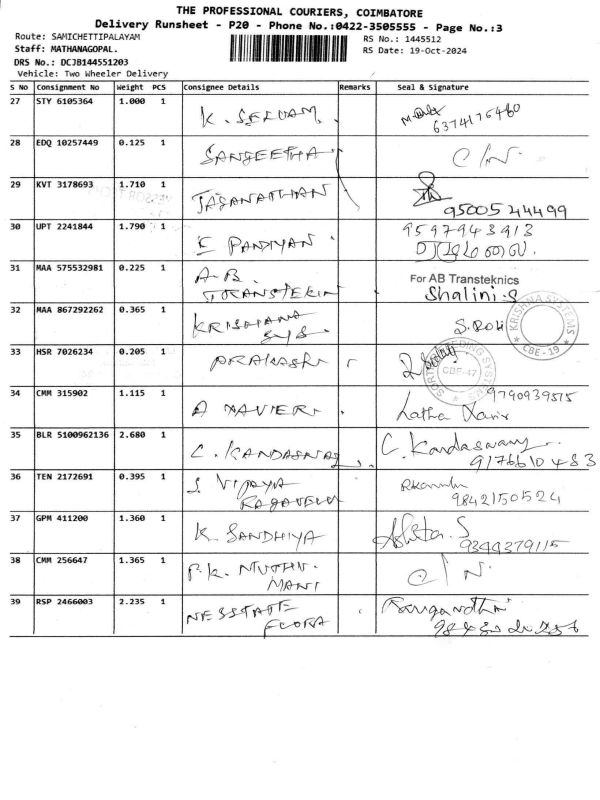 THE PROFESSIONAL COURIERS, COIMBATORE
Delivery Runsheet - P20 - Phone No.:0422-3505555 - Page No.:3
Route: SAMICHETTIPALAYAM
RS No.: 1445512
Staff: MATHANAGOPAL.
RS Date: 19-Oct-2024
DRS No.: DCJB144551203
Vehicle: Two Wheeler Delivery
S No Consignment No Weight PCS Consignee Details Remarks Seal & Signature
27 STY 6105364 1.000 1 K. SELVAM.
6374176460
28 EDQ 10257449 0.125 1 SANGEETHA C/N.
29 KVT 3178693 1.710 1 JAGANATHAN
9500544499
30 UPT 2241844 1.790 1 E PANDIYAN. 9597943913
31 MAA 575532981 0.225 1 A.B. For AB Transteknics
Shalini.S
32 MAA 867292262 0.365 1 KRISHANA SYS.
KRISHNA SYSTEMS CBE-19
33 HSR 7026234 0.205 1 PRAKASH
CBE-47
34 CMM 315902 1.115 1 A XAVIER. 9790939515
Latha
35 BLR 5100962136 2.680 1 C. KANDASWAY C. Kandaswamy
9176610483
36 TEN 2172691 0.395 1 VIJAYA
RAGAVELU 9842150524
37 GPM 411200 1.360 1 K. SANDHIYA
9344379115
38 CMM 256647 1.365 1 P.K. MUTHU
MANI C/N.
39 RSP 2466003 2.235 1
FLORA